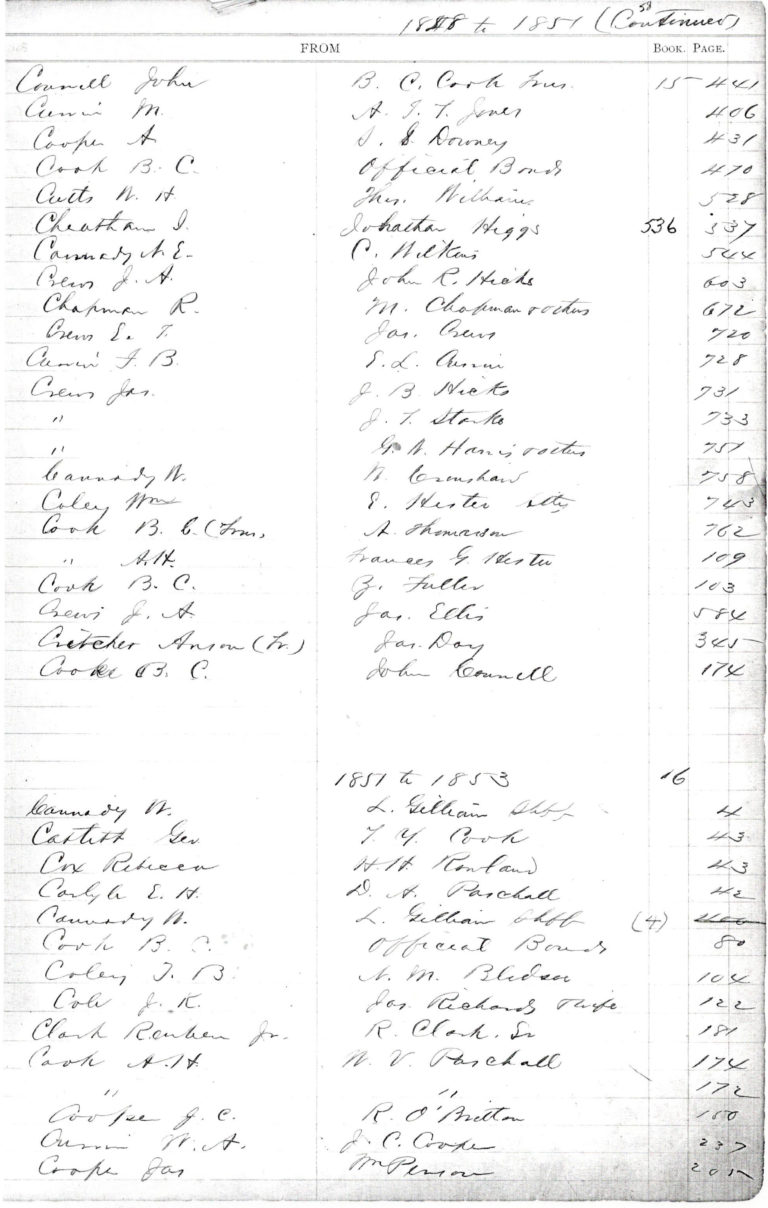 1848 to 1851 (Continued)
FROM BOOK. PAGE.
Connell John B. C. Cook Trus. 15 441
M. A. T. T. Jones 406
Cooper A J. S. Downey 431
Cook B. C. Official Bonds 470
Cutts W. H Thos. Williams 528
Cheatham I. Johnathan Higgs 536 537
Cannady N. E. C. Wilkins 544
Crews J. A. John R. Hicks 603
Chapman R. M. Chapman & others 672
Crews E. T. Jas. Crews 720
B. E. L. 728
Crews Jas. J. B. Hicks 731
" J. T. Starke 733
" G. W. Harris & others 751
Cannady W. N. Crenshaw 758
Coley Wm E. Hester Atty 743
Cook B. C. (Trus. A. Thomasson 762
" A.H. Frances G. Hester 109
Cook B. C. Z. Fuller 103
Crews J. A. Jas. Ellis 584
Critcher Anson (Tr.) Jas. Day 345
Cooke B. C. John Connell 174
1851 to 1853 16
Cannady W. L. Gilliam Shff 4
Castlett Geo T. Y. Cook 43
Cox Rebecca H. H. Rowland 43
Carlyle E. H. D. A. Paschall 42
Cannady W. L. Gilliam Shff (4) 400
Cook B. C. Official Bonds 80
Coley T. B. N. M. Bledsoe 104
Cole J. K. Jas. Richards & wife 122
Clark Reuben Jr. R. Clark. Sr 181
Cook A. H. W. V. Paschall 174
" 172
Cooper J. C. R. O'Britton 150
W. A. J. C. Cooper 237
Cooper Jas Wm Person 205